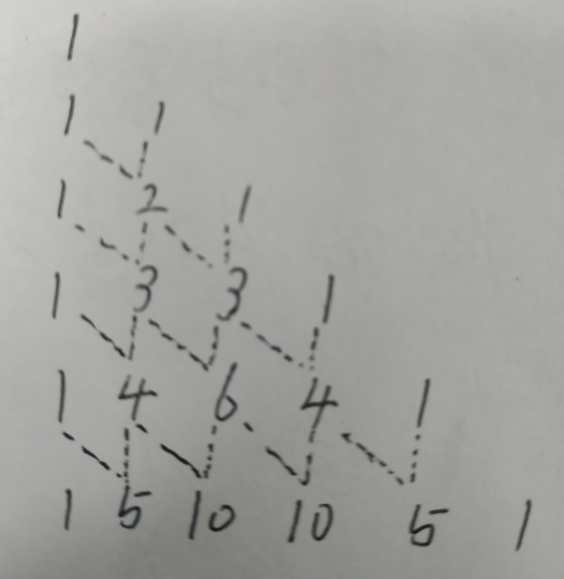 1
1 1
1 2 1
1 3 3 1
1 4 6 4 1
1 5 10 10 5 1